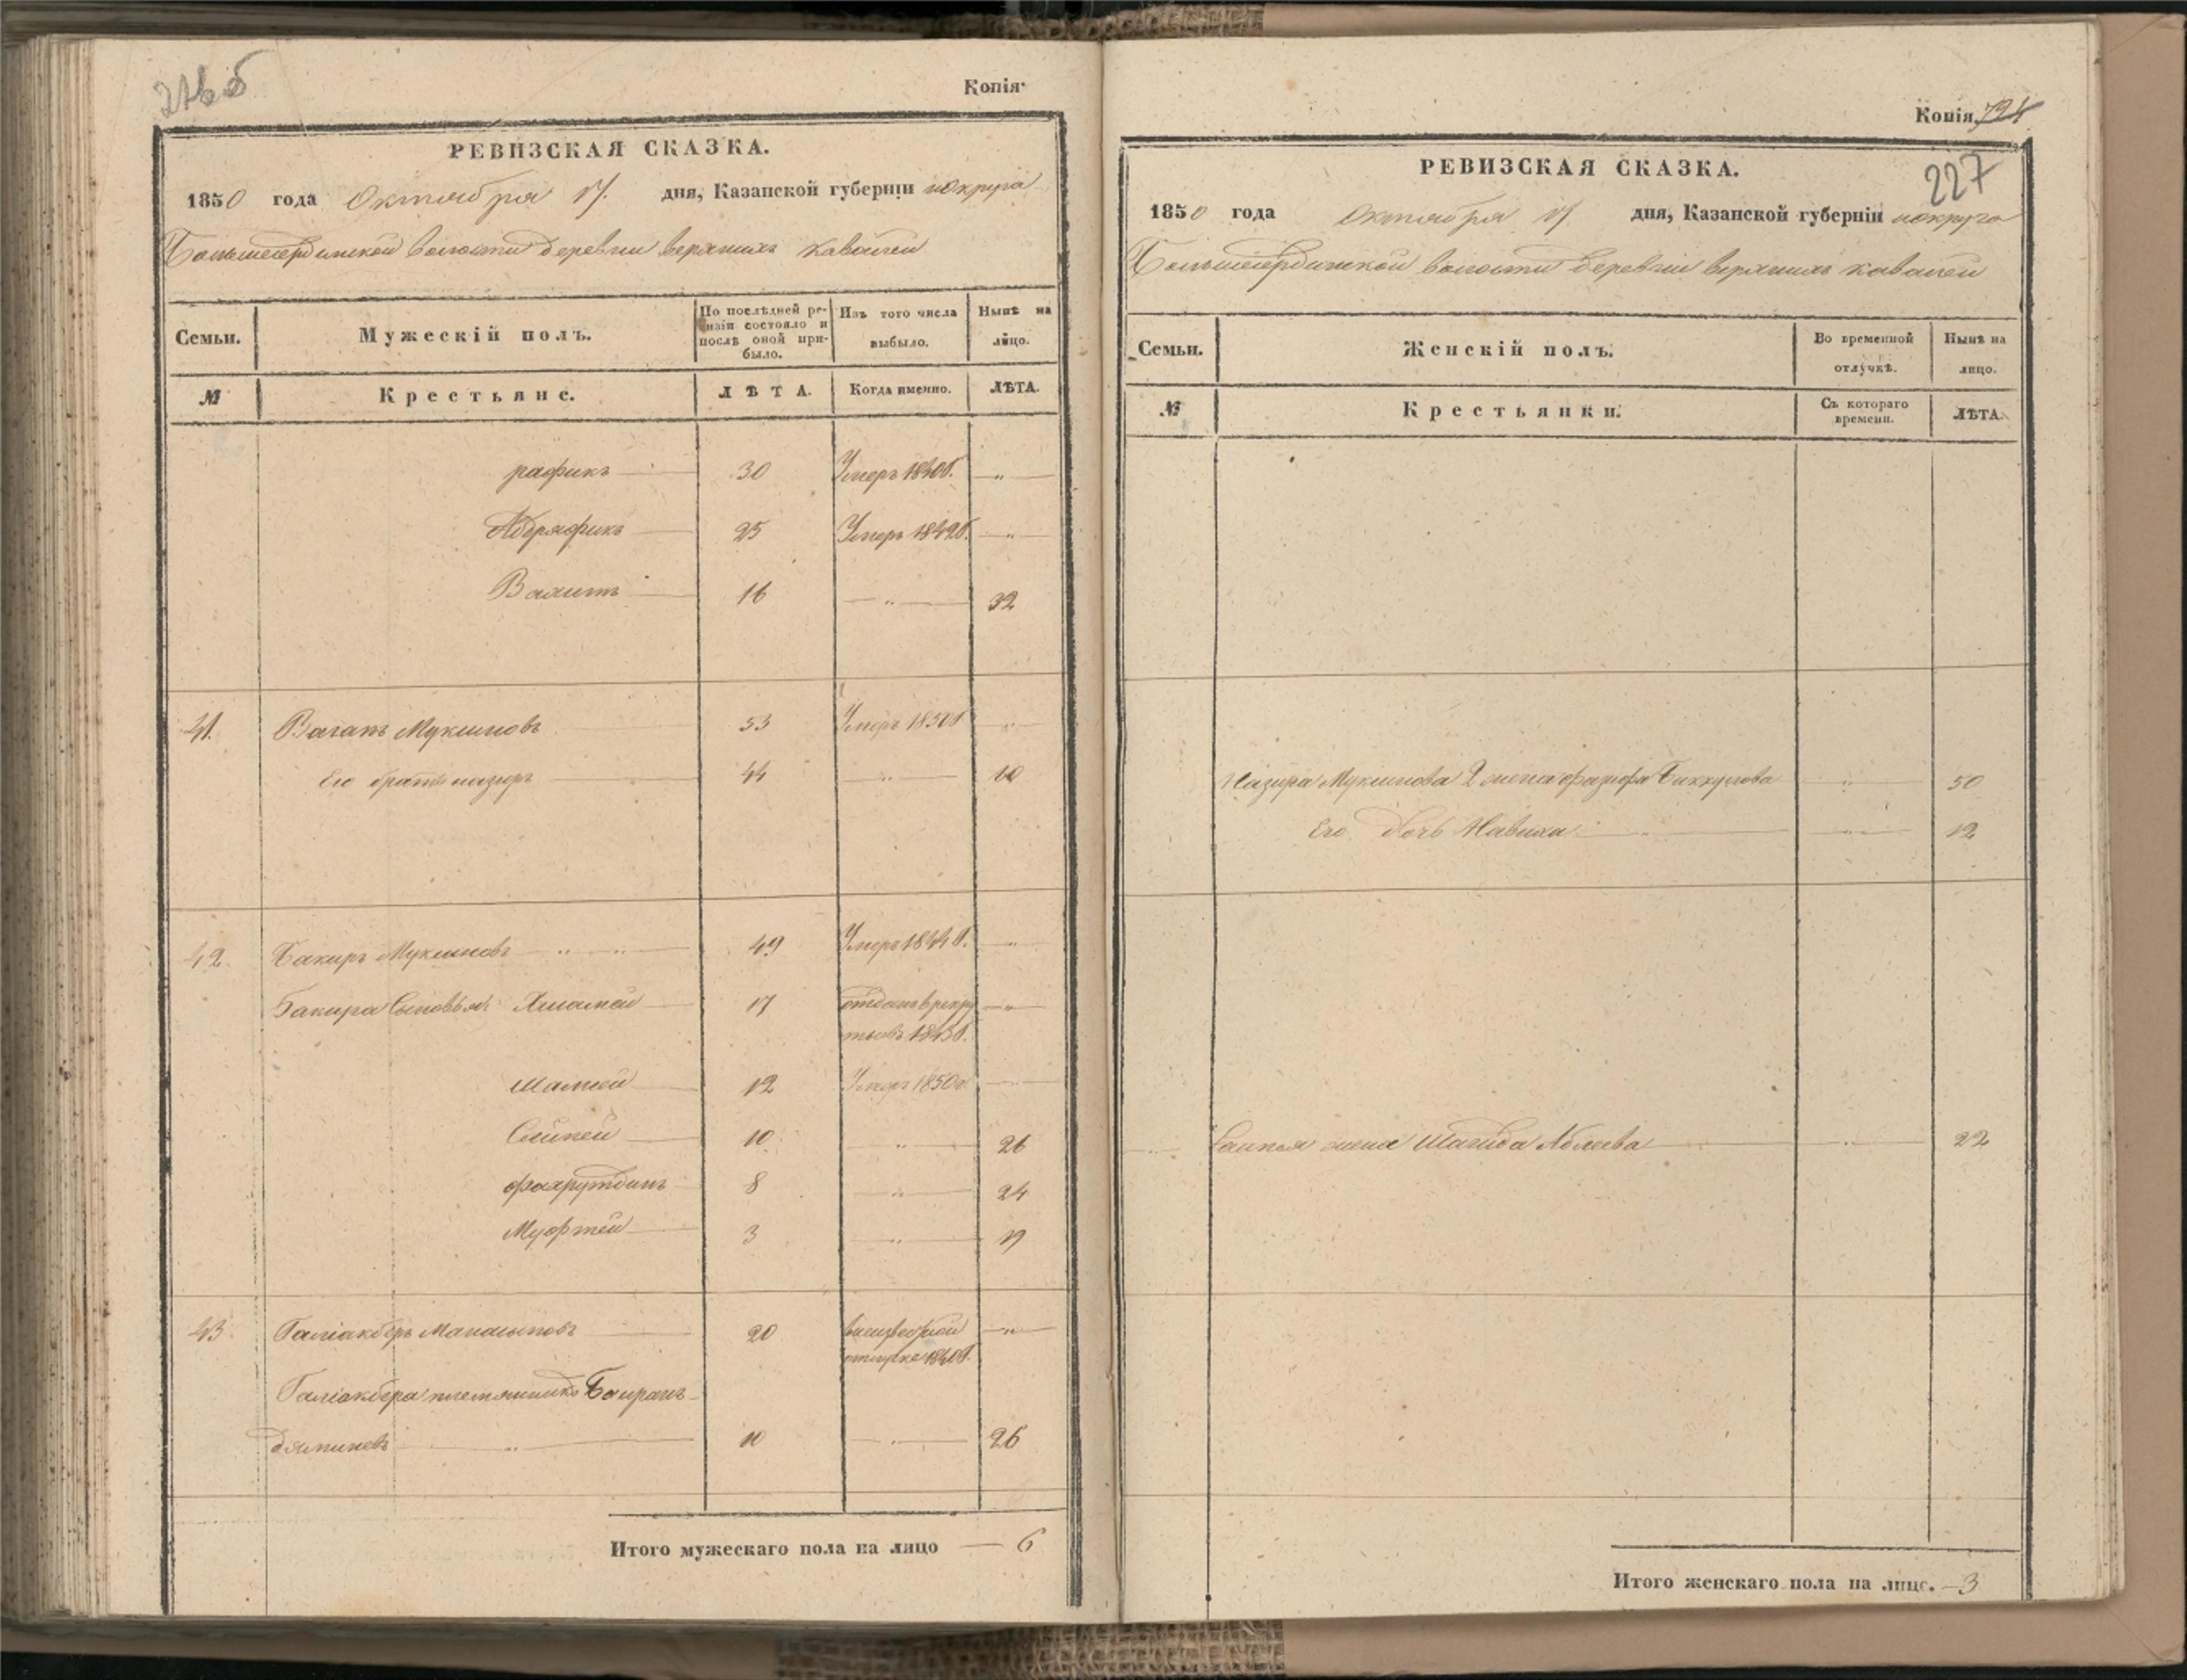 226 об
Копія
РЕВИЗСКАЯ СКАЗКА.
1850 года Октября 17. дня, Казанской губерніи и округа
Большееердинской волости деревни верхнихъ кавалей
Семьи.
Мужескій полъ.
По послѣдней ревизіи состояло и послѣ оной прибыло.
Изъ того числа выбыло.
Нынѣ на лицо.
№ Крестьяне. ЛѢТА. Когда именно. ЛѢТА.
рафикъ 30 Умеръ 1840г. "
Абдряфикъ 25 Умеръ 1842г. "
Валитъ 16 " 32
41. Вагапъ Муксиновъ 53 Умеръ 1850г "
Его братъ назиръ 44 " 60
42. Бакиръ Муксиновъ " " 49 Умеръ 1844г. "
Бакира Сыновья: 17 отданъ в рекру "
12 Умеръ 1850г.
10 " 26
фахрутдинъ 8 " 24
Муфтей 3 " 19
43. Галіакберъ 20 "
отлучке 1840г.
Галіакбера племянникъ Баирамъ
10 " 26
Итого мужескаго пола на лицо — 6
Копія 724
227
РЕВИЗСКАЯ СКАЗКА.
1850 года Октября 17 дня, Казанской губерніи и округа
Большееердинской волости деревни верхнихъ кавалей
Семьи.
Женскій полъ.
Во временной отлучкѣ.
Нынѣ на лицо.
№ Крестьянки. Съ котораго времени. ЛѢТА.
Назира Муксинова 2 жена " 50
Его дочь " " 12
жена Шагида Аблеева " 22
Итого женскаго пола на лицо. — 3